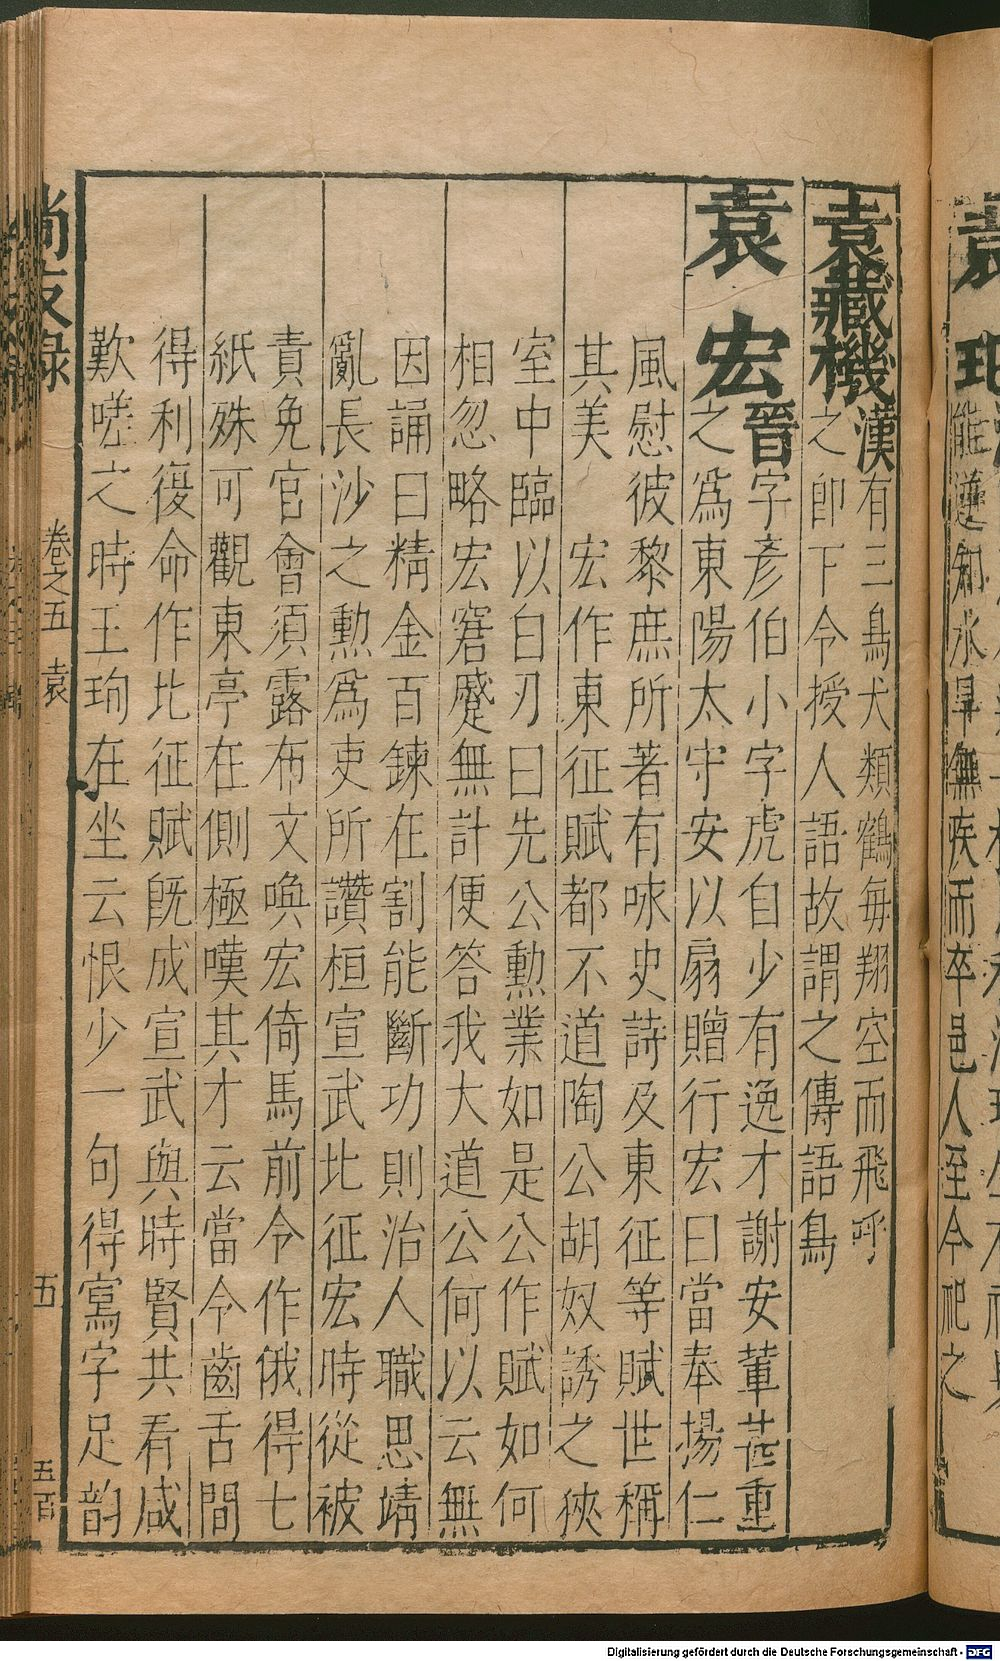 袁藏機
漢有三鳥犬類鶴每翔空而飛呼
之即下令授人語故謂之傳語鳥
袁宏
晉字彥伯小字虎自少有逸才謝安輩甚重
之爲東陽太守安以扇贈行宏曰當奉揚仁
風慰彼黎庶所著有咏史詩及東征等賦世稱
其美 宏作東征賦都不道陶公胡奴誘之狹
室中臨以白刃曰先公勳業如是公作賦如何
相忽略宏窘蹙無計便答我大道公何以云無
因誦曰精金百鍊在割能斷功則治人職思靖
亂長沙之勳爲吏所讚桓宣武北征宏時從被
責免官會須露布文喚宏倚馬前令作俄得七
紙殊可觀東亭在側極嘆其才云當今齒舌間
得利復命作北征賦旣成宣武與時賢共看咸
歎嗟之時王珣在坐云恨少一句得寫字足韵
尚友錄 卷之五 袁 五 五百
能逆知水旱無疾而卒邑人至今祀之
Digitalisierung gefördert durch die Deutsche Forschungsgemeinschaft - DFG